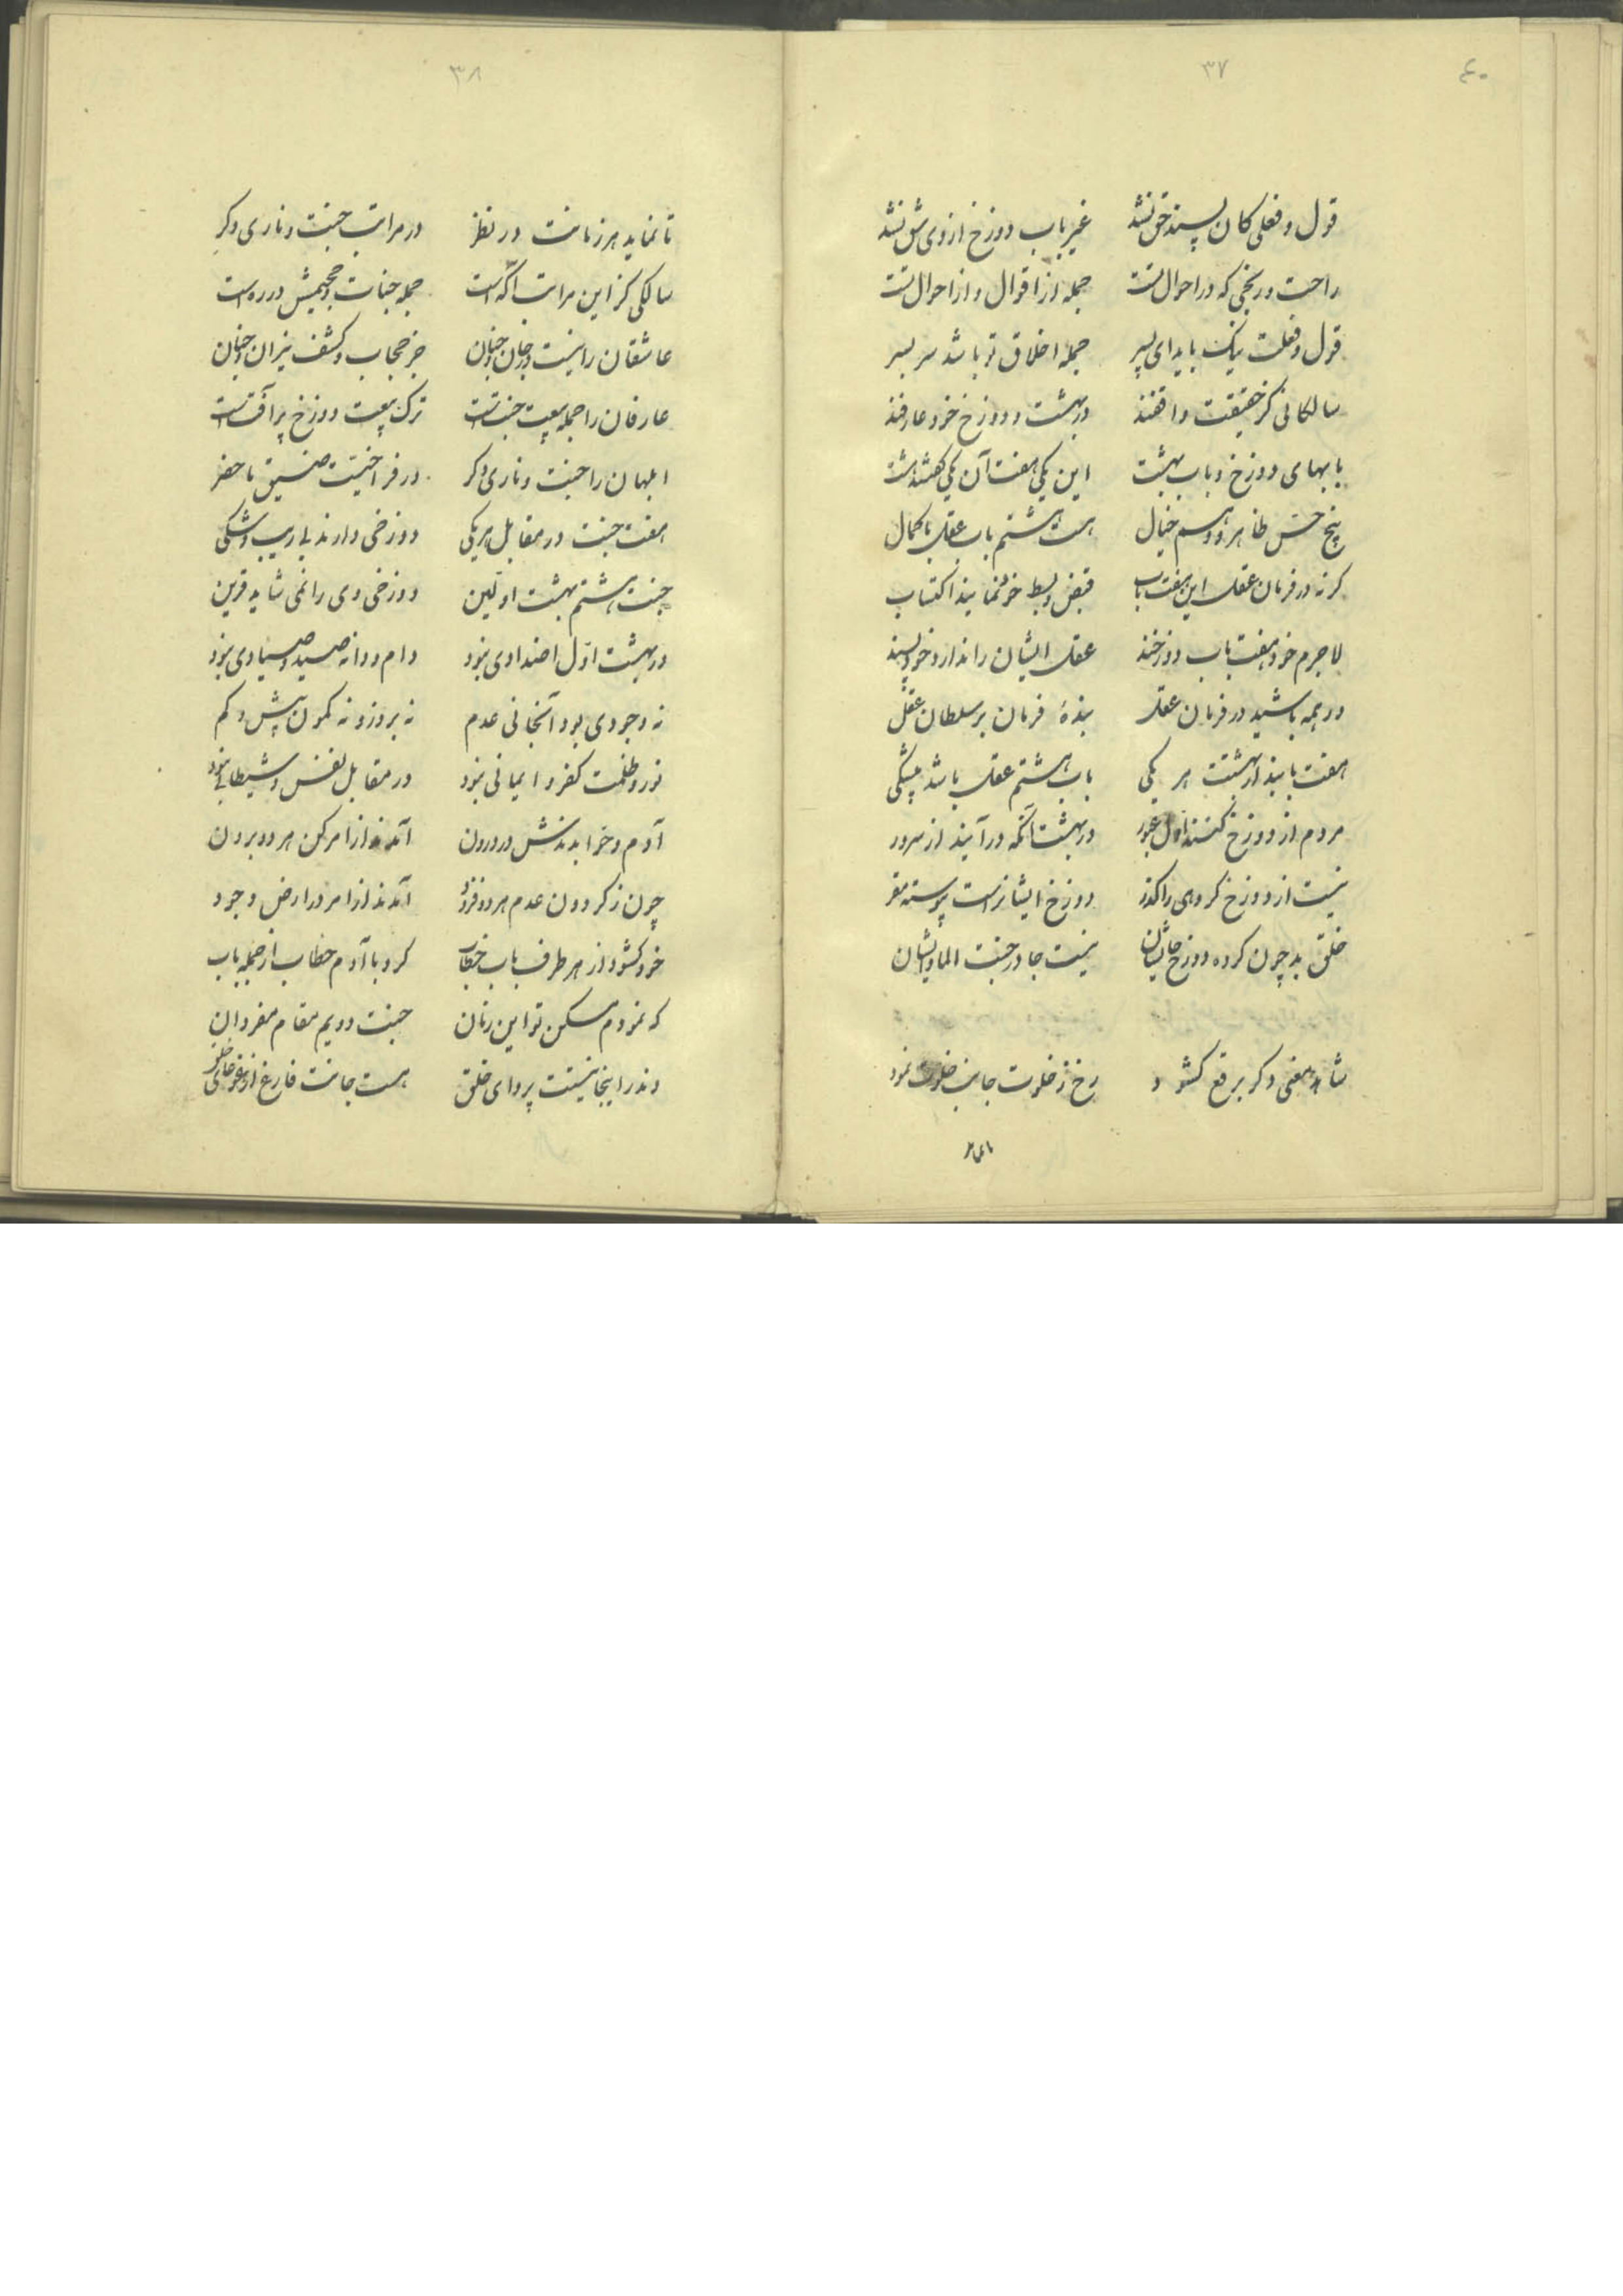 ۴۰
۳۷
قول و فعلی کان پسند حق نشد غیر باب دوزخ از وی شق نشد
راحت و رنجی که در احوال تست جمله از اقوال و از احوال تست
قول و فعلت نیک باید ای پسر جمله اخلاق تو باشد سر بسر
سالکانی کز حقیقت واقفند در بهشت و دوزخ خود عارفند
بابهای دوزخ و باب بهشت این یکی هفت آن یکی هشت
پنج حس ظاهر و وهم خیال هست هشتم باب عقل با کمال
کر نه در فرمان عقل این هفت باب قبض و بسط خود نمایند اکتساب
لاجرم خود هفت باب دوزخند عقل ایشان را ندارد خود پسند
در همه باشید در فرمان عقل بندهٔ فرمان بر سلطان عقل
هفت بابند از بهشتت هر یکی باب هشتم عقل باشد بیشکی
مردم از دوزخ کنند اول عبور در بهشت آنگه درآیند از سرور
نیست از دوزخ کروهی را کذر دوزخ ایشانراست پیوسته مقر
خلق بد چون کرده دوزخ جایشان نیست جا در جنت الماوایشان
شاهد معنی دکر برقع کشود رخ ز خلوت جانب خلوت نمود
۳۸
تا نماید هر زمانت در نظر در مراتب جنت و ناری دکر
سالکی کز این مراتب آکه است جمله جنات و جحیمش در ره است
عاشقان را نیست در جان و جنان جز حجاب و کشف نیران و جنان
عارفان را جمله بیعت جنت است ترک بیعت دوزخ پر آفت است
ابلهان را جنت و ناری دکر در فراخیت ضیق ما حضر
هفت جنت در مقابل هر یکی دوزخی دارند بی ریب و شکی
جنت هشتم بهشت اولین دوزخی وی را نمی شاید قرین
در بهشت اول اضدادی نبود دام و دانه صید و صیادی نبود
نه وجودی بود آنجا نی عدم نه بروز و نه کمون بیش و کم
نور و ظلمت کفر و ایمانی نبود در مقابل نفس و شیطانی نبود
آدم و حوا بدندش در درون آمدند از امر کن هر دو برون
چون ز کردون عدم هر دو فرود آمدند از امر در ارض وجود
خود کشود از هر طرف باب خطاب کرد با آدم خطاب از جمله باب
که نمودم مسکن تو این زمان جنت دویم مقام مفردان
وندر اینجا نیستت پروای خلق هست جانت فارغ از غوغای خلق